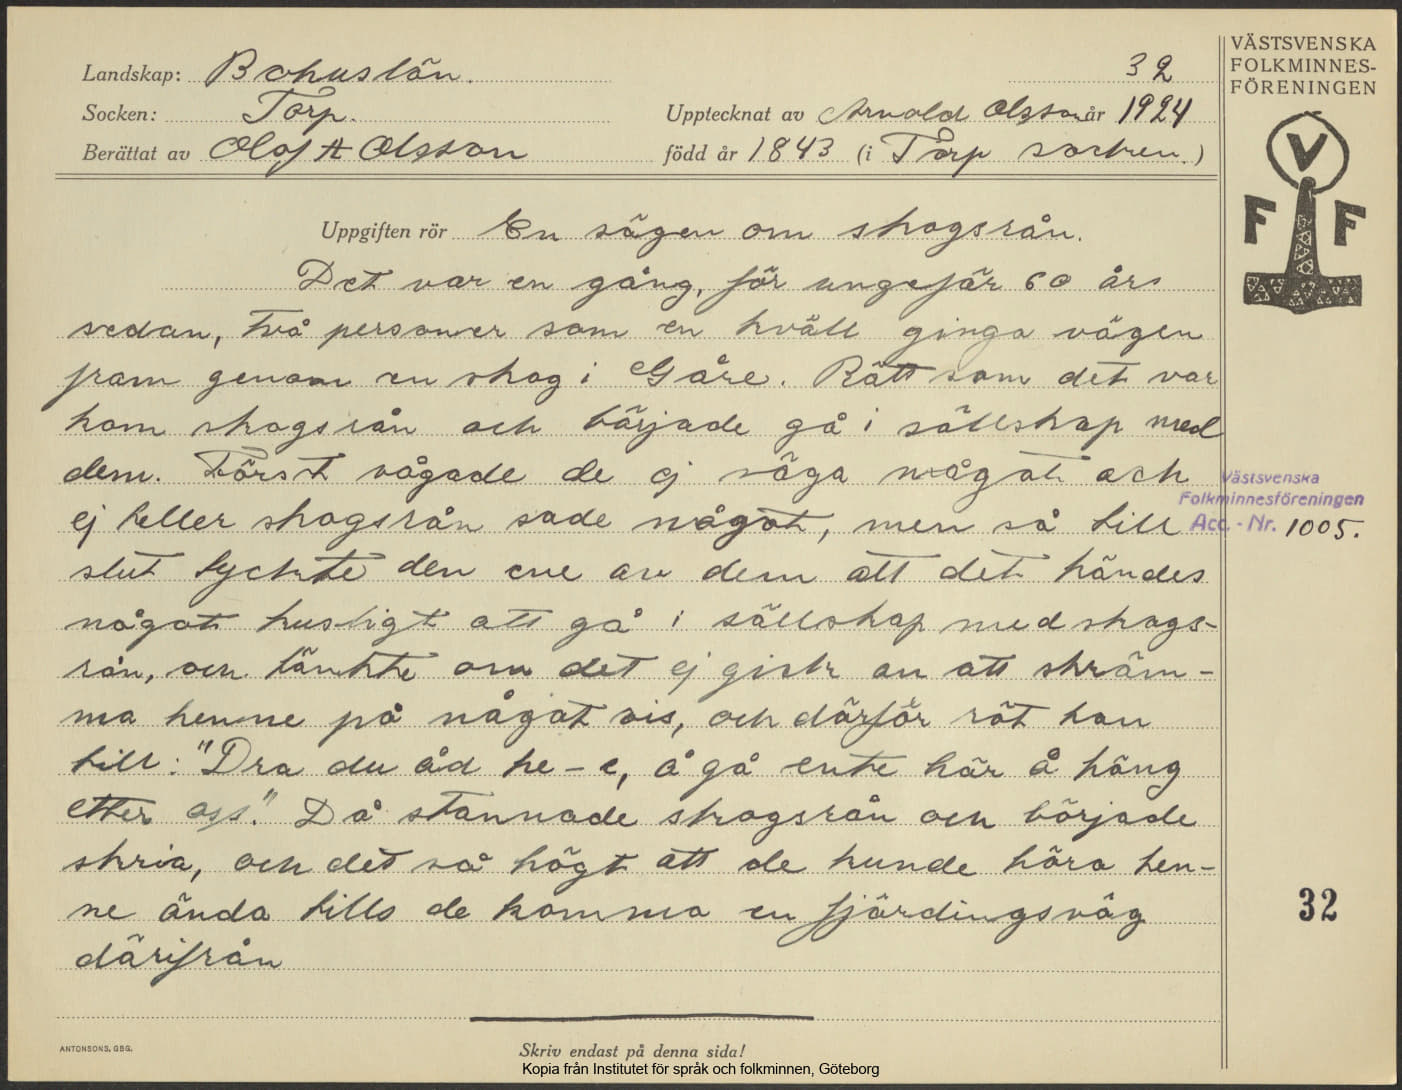 Landskap: Bohuslän. 32
Socken: Torp. Upptecknat av Arnold Olsson år 1924
Berättat av Olof A Olsson född år 1843 (i Torp socken.)
VÄSTSVENSKA
FOLKMINNES-
FÖRENINGEN
V
F F
Uppgiften rör En sägen om skogsrån.
Det var en gång, för ungefär 60 års
sedan, två personer som en kväll gingo vägen
fram genom en skog i Gåre. Rätt som det var
kom skogsrån och började gå i sällskap med
dem. Först vågade de ej säga något och
ej heller skogsrån sade något, men så till
slut tyckte den ene av dem att det kändes
något kusligt att gå i sällskap med skogs-
rån, och tänkte om det ej gick an att skräm-
ma henne på något vis, och därför röt han
till: "Dra du åd he-e, å gå ente här å häng
etter oss". Då stannade skogsrån och började
skria, och det så högt att de kunde höra hen-
ne ända tills de kommo en fjärdingsväg
därifrån
Västsvenska
Folkminnesföreningen
Acc. - Nr. 1005.
32
ANTONSONS, GBG.
Skriv endast på denna sida!
Kopia från Institutet för språk och folkminnen, Göteborg